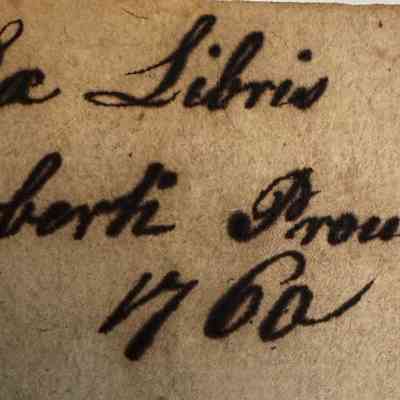 Ex Libris
berti Prou
1760